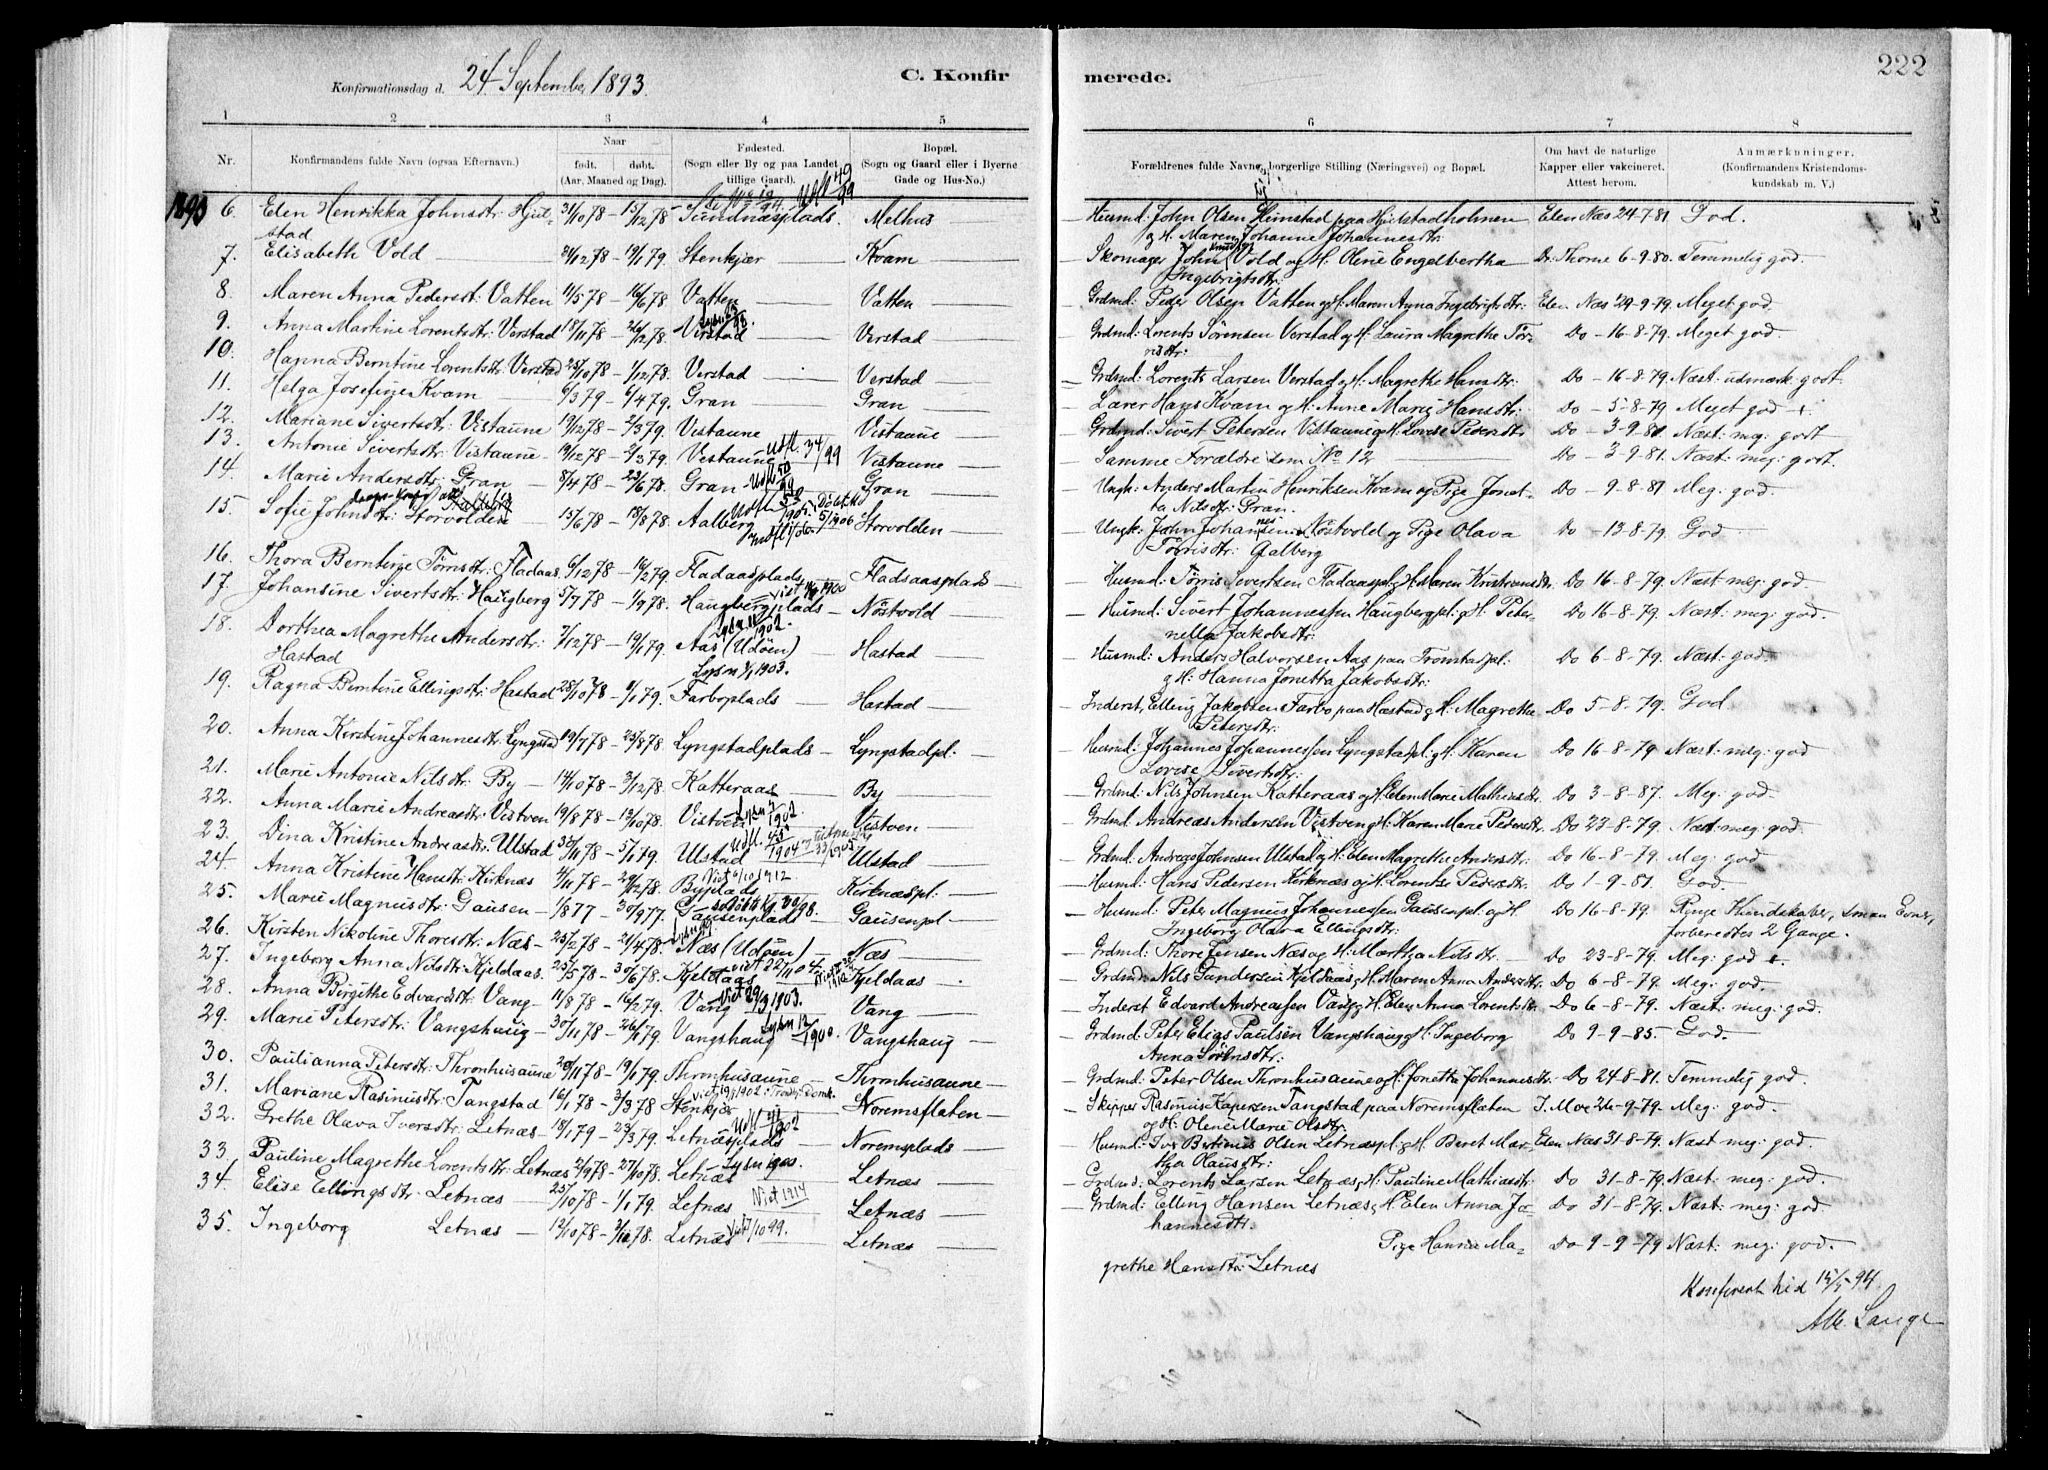 222
Konfirmationsdag d. 24 September 1893.
C. Konfir merede.
1 2 3 4 5 6 7 8
Nr. Konfirmandens fulde Navn (ogsaa Efternavn.) Naar født. døbt. (Aar, Maaned og Dag). Fødested. (Sogn eller By og paa Landet tillige Gaard). Bopæl. (Sogn og Gaard eller i Byerne Gade og Hus-No.) Forældrenes fulde Navne, borgerlige Stilling (Næringsvei) og Bopæl. Om havt de naturlige Kopper eller vakcineret. Attest herom. Anmærkninger. (Konfirmandens Kristendomskundskab m. V.)
1893
6. Elen Henrikka Johnsdtr: Hjul- 31/10 78 – 15/12 78 Sundnæsplads. Melhus Husmd: John Olsen Heimstad paa Hjulstadholmen Elen Næs 24-7-81 God.
stad & H. Maren Johanne Johannesdtr:
7. Elisabeth Vold 24/12 78 – 19/1 79. Stenkjær Kvam Skomager John Vold og H. Oline Engelbertha Dr. Thorne 6-9-80. Temmelig god.
Ingebrigtsdtr:
8. Maren Anna Pedersdt: Vatten 11/5 78 – 16/6 78 Vatten Vatten Grdmd: Peder Olsen Vatten og H. Maren Anna Ingebrigtsdtr: Elen Næs 29-9-79 Meget god
9. Anna Martine Lorentsdtr: Verstad 18/11 78 – 26/12 78. Virstad Verstad Grdmd: Lorents Sørensen Verstad og H. Laura Magrethe Tør- Do – 16-8-79. Meget god.
risdtr:
10. Hanna Berntine Lorentsdtr: Verstad 28/10 78 – 1/12 78. Verstad Verstad Grdmd: Lorents Larsen Verstad og H. Magrethe Hansdtr: Do – 16-8-79. Næst: udmærk: godt.
11. Helga Josefine Kvam 6/3 79 – 6/4 79. Gran Gran Lærer Hans Kvam og H: Anne Marie Hansdtr: Do – 5-8-79 Meget god +.
12. Mariane Sivertsdtr: Vistaune 19/12 78 – 2/3 79. Vistaune Vistaune Grdmd: Sivert Petersen Vistaune og H. Lovise Pedersdtr Do – 3-9-81 Næst: meg: godt
13. Antonie Sivertsdtr: Vistaune 19/12 78 – 2/3 79. Vestaune Udfl. 34/99 Vistaune Samme Forældre som No 12 Do – 3-9-81. Næst: meg: godt.
14. Marie Andersdtr: Gran 8/4 78 – 23/6 78. Gran Gran Ungk: Anders Martin Henriksen Kvam og Pige Jonet- Do – 9-8-81 Meg: god.
ta Nilsdtr: Gran.
15. Sofie Johnsdtr: Storvolden 15/6 78 – 18/8 78. Aalberg Storvolden Ungk: John Johansen Nøstvold og Pige Olava Do – 13-8-79. God
Tørrisdtr: Aalberg
16. Thora Berntine Tørrisdtr: Fladaas 6/12 78 – 16/2 79. Fladaasplads Fladsaasplads Husmd: Tørris Sivertsen Fladaaspl: & H. Maren Kristiansdtr Do 16-8-79. Næst meg: god
17. Johansine Sivertsdtr: Haugberg 5/7 78 – 1/9 78. Haugbergplads Nøstvold Husmd: Sivert Johannessen Haugbergpl: & H. Peter- Do 16-8-79. Næst: meg: god
nella Jakobsdtr:
18. Dorthea Magrethe Andersdtr: 7/12 78 – 19/1 79. Aas (Udøen) Hastad Husmd: Anders Halvorsen Aas paa Tromstadpl: Do 6-8-79. Næst: god.
Hastad Lysn 1/1 1903. & H: Hanna Jonetta Jakobsdtr:
19. Ragna Berntine Ellingsdtr: Hastad 28/10 78 – 1/1 79. Farboplads Hastad Inderst, Elling Jakobsen Farbo paa Hastad & H: Magrethe Do 5-8-79. God
Petersdtr:
20. Anna Kirstine Johannesdtr: Lyngstad 19/7 78 – 25/8 78 Lyngstadplads Lyngstadpl: Husmd: Johannes Johannessen Lyngstadpl: & H. Karen Do 16-8-79. Næst: meg: god
Lovise Sivertsdtr:
21. Marie Antonie Nilsdtr: By 14/10 78 – 3/12 78 Katteraas By Grdmd: Nils Johnsen Katteraas og H. Elen Marie Mathiasdtr Do 3-8-87. Meg: god.
22. Anna Marie Andreasdtr: Vistven 19/8 78 – 13/10 78. Vistven Vistven Grdmd Andreas Andersen Vistven & H: Karen Marie Pedersdtr Do 23-8-79. Næst: meg: god.
23. Dina Kristine Andreasdtr: Ulstad 30/11 78 – 5/1 79. Ulstad Ulstad Grdmd: Andreas Johnsen Ulstad & H: Elen Magrethe Andersdtr: Do 16-8-79. Meg: god
24. Anna Kristine Hansdtr: Kirknæs 4/11 78 – 29/12 78. Byplads Kirknæspl: Husmd: Hans Pedersen Kirknæs og H. Lorentse Pedersdtr. Do 1-9-81. God.
25. Marie Magnusdtr: Gausen 1/8 77 – 30/9 77. Gausenplads Gausenpl Husmd: Peter Magnus Johannessen Gausenpl: og H. Do 16-8-79. Ringe Kundskaber, smaa Evner,
Ingeborg Olava Ellingsdtr: forberedtes 2 Gange.
26. Kirsten Nikoline Thoresdtr: Næs 25/2 78 – 21/4 78. Næs (Udøen) Næs Grdmd: Thore Jensen Næs og H: Martha Nilsdtr. Do 23-8-79. Meg: god +.
27. Ingeborg Anna Nilsdtr: Kjeldaas. 25/5 78 – 30/6 78. Kjeldaas Kjeldaas Grdmd: Nils Gundersen Kjeldaas & H. Maren Anna Andersdtr Do 6-8-79. Meg: god.
28. Anna Birgithe Edvardsdtr: Vang 11/8 78 – 16/2 79. Vang Viet 29/3 1903. Vang Inderst Edvard Andreassen Vang & H. Elen Anna Lorentsdtr Do 6-8-79. Næst: meg: god.
29. Marie Petersdtr: Vangshaug 30/11 78 – 26/1 79. Vangshaug Vangshaug Grdmd: Peter Elias Paulsen Vangshaug & H. Ingeborg Do 9-9-85. God.
Anna Sørensdtr:
30. Paulianna Petersdtr: Thronhusaune 20/11 78 – 19/1 79. Thronhusaune Thronhusaune Grdmd: Peter Olsen Thronhusaune & H: Jonetta Johannesdtr. Do 24-8-81. Temmelig god.
31. Mariane Rasmusdtr: Tangstad 16/1 78 – 3/3 78 Stenkjær Noremsflaten Skipper Rasmus Kapersen Tangstad paa Noremsflaten J. Moe 26-9-79. Meg: god.
& H. Oline Marie Olsdtr.
32. Grethe Olava Iversdtr: Letnæs 18/1 79 – 23/3 79. Letnæsplads Noremsplads Husmd: Iver Bertinus Olsen Letnæspl: & H. Beret Mar- Elen Næs 31-8-79. Næst meg: god.
tha Olausdtr:
33. Pauline Magrethe Lorentsdtr: Letnæs 2/9 78 – 27/10 78. Letnæs Letnæs Grdmd: Lorents Larsen Letnæs, H: Pauline Mathiasdtr: Do 31-8-79. Næst: meg: god.
34. Elise Ellingsdtr. Letnæs 25/10 78 – 1/1 79. Letnæs Viet 1914 Letnæs Grdmd: Elling Hansen Letnæs, H. Elen Anna Jo- Do 31-8-79. Næst: meg: god
hannesdtr.
35. Ingeborg Letnæs 12/10 78 – 3/12 78. Letnæs Letnæs Pige Hanna Ma- Do 9-9-79 Næst: meg: god.
grethe Hansdtr: Letnæs
Konfereret hid 15/5-94.
Lange